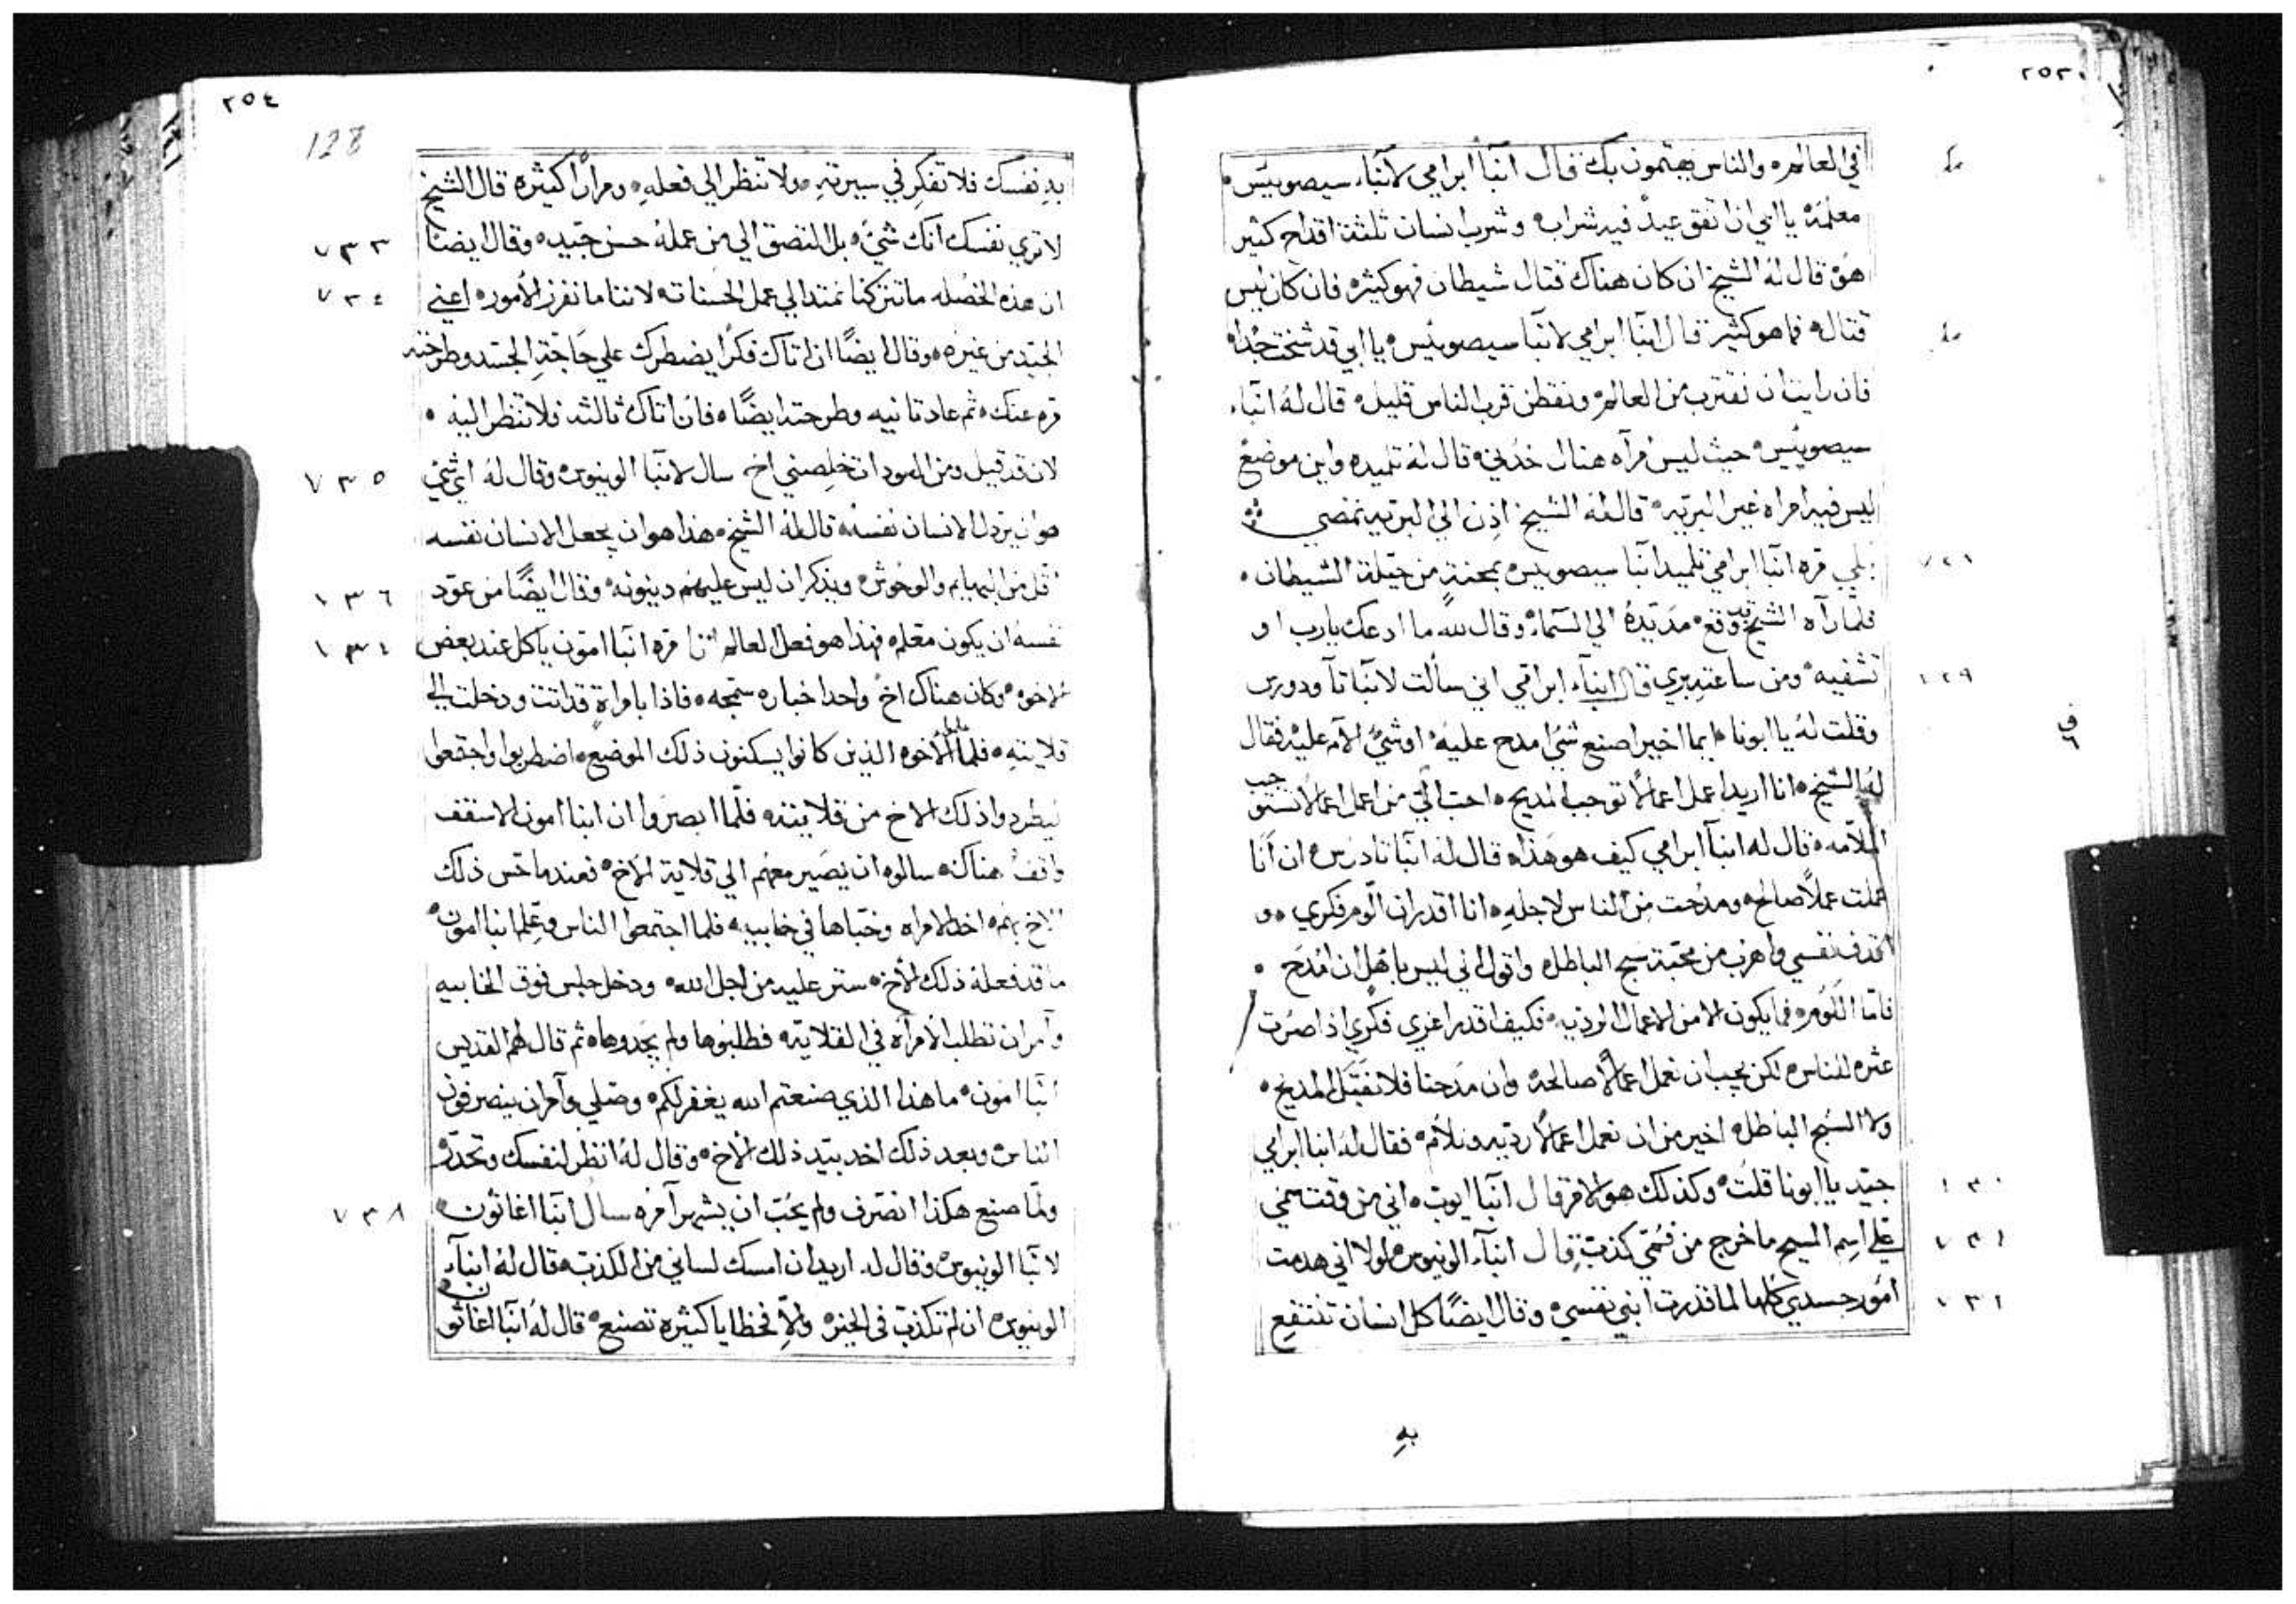 ٢٥٣
في العالم والناس يهتمون بك قال انبا ابرامي لانباء سيصوييس
معلمه يا ابي ان اتفق عيد فيه شراب وشرب انسان ثلثة اقداح كثير
هو قال له الشيخ ان كان هناك قتال شيطان فهو كثير فان كان ليس
قتال فما هو كثير قال انبا ابرامي لانبا سيصوييس يا ابي قد شخت جدا
فان رايت ان نقترب من العالم ونقطن قرب الناس قليل قال له انباء
سيصوييس حيث ليس مرآه هناك خدني قال له تلميده واين موضع
ليس فيه امراه غير البريه قال له الشيخ اذن الي البريه نمضي
بلي مره انبا ابرامي تلميد انبا سيصوييس بمحنة من حيلة الشيطان
فلما رآه الشيخ قد وقع مد يده الي السماء وقال لله ما ادعك يارب او
تشفيه ومن ساعته بري قال انباء ابرامي اني سألت لانبا تآودورس
وقلت له يا ابونا ايما اخير اصنع شئ امدح عليه اوشئ الآم عليه فقال
له الشيخ انا اريد اعمل اعمالاً توجب المديح احب الي من اعمل اعمالا تستوجب
الملامه قال له انبآ ابرامي كيف هو هذا قال له انبا تادرس ان انا
عملت عملاً صالح ومدحت من الناس لاجله انا اقدر ان الوم فكري و
احدف نفسي واهرب من محبة سبح الباطل واقول اني ليس باهل ان امدح
فاما اللوم فما يكون الا من الاعمال الرديه فكيف اقدر اعزي فكري اذا صرت
عثره للناس لكن يجب ان نعمل اعمالاً صالحه وان مدحنا فلا نقبل المديح
ولا السبح الباطل اخير من ان نعمل اعمالاً رديه ونلام فقال له انبا ابرامي
جيد يا ابونا قلت وكذلك هو الامر قال انبا ايوب اني من وقت سمي
علي اسم المسيح ما خرج من فمي كذب قال انبآء الونيوس لولا اني هدمت
امور جسدي كلها لما قدرت ابني نفسي وقال ايضاً كل انسان تنتفع
به
٢٥٤
128
به نفسك فلا تفكر في سيرته ولا تنظر الي فعله ومراراً كثيره قال الشيخ
لا تري نفسك انك شئ بل التصق الي من عمله حسن جيد وقال ايضاً
٧٣٣
ان هذه الخصله ما تتركنا نمتد الي عمل الحسنات لاننا ما نفرز الامور اعني
٧٣٤
الجيد من غيره وقال ايضاً ان اتاك فكر يضطرك علي حاجة الجسد وطرحته
مره عنك ثم عاد تانيه وطرحته ايضاً فان اتاك تالته فلا تنظر اليه
لان قد قيل ومن المودات تخلصني اخ سال لانبا الونيوس وقال له اي شئ
٧٣٥
هو ان يزدل الانسان نفسه قال له الشيخ هذا هو ان يجعل الانسان نفسه
اقل من البهايم والوحوش ويذكر ان ليس عليهم دينونه وقال ايضاً من عود
٧٣٦
نفسه ان يكون معلم فهذا هو فعل العالم مره انبا امون ياكل عند بعض
الاخوه وكان هناك اخ واحد اخباره سمجه فاذا بامراة قد اتت ودخلت الي
قلايته فلما علموا الاخوه الذين كانوا يسكنون ذلك الموضع اضطربوا واجتمعوا
ليطردوا ذلك الاخ من قلايته فلما ابصروا ان انبا امون الاسقف
واقف هناك سالوه ان يصير معهم الي قلاية الاخ فعندما حس ذلك
الاخ بهم اخد الامراه وخباها في خابيه فلما اجتمعوا الناس وعلم انبا امون
ما قد فعله ذلك الأخ ستر عليه من اجل الله ودخل جلس فوق الخابيه
وآمر ان تطلب الامرأه في القلايه فطلبوها ولم يجدوها ثم قال لهم القديس
انبا امون ما هذا الذي صنعتم الله يغفر لكم وصلي وآمر ان ينصرفون
الناس وبعد ذلك اخد بيد ذلك الاخ وقال له انظر لنفسك وتحدر
ولما صنع هكذا انصرف ولم يحب ان يشهر آمره سال انبا اغاتون
٧٣٨
لانبا الونيوس وقال له اريد ان امسك لساني من الكذب قال له انبآء
الونيوس ان لم تكذب في الحين والا فخطايا كثيره تصنع قال له انبا اغاثون